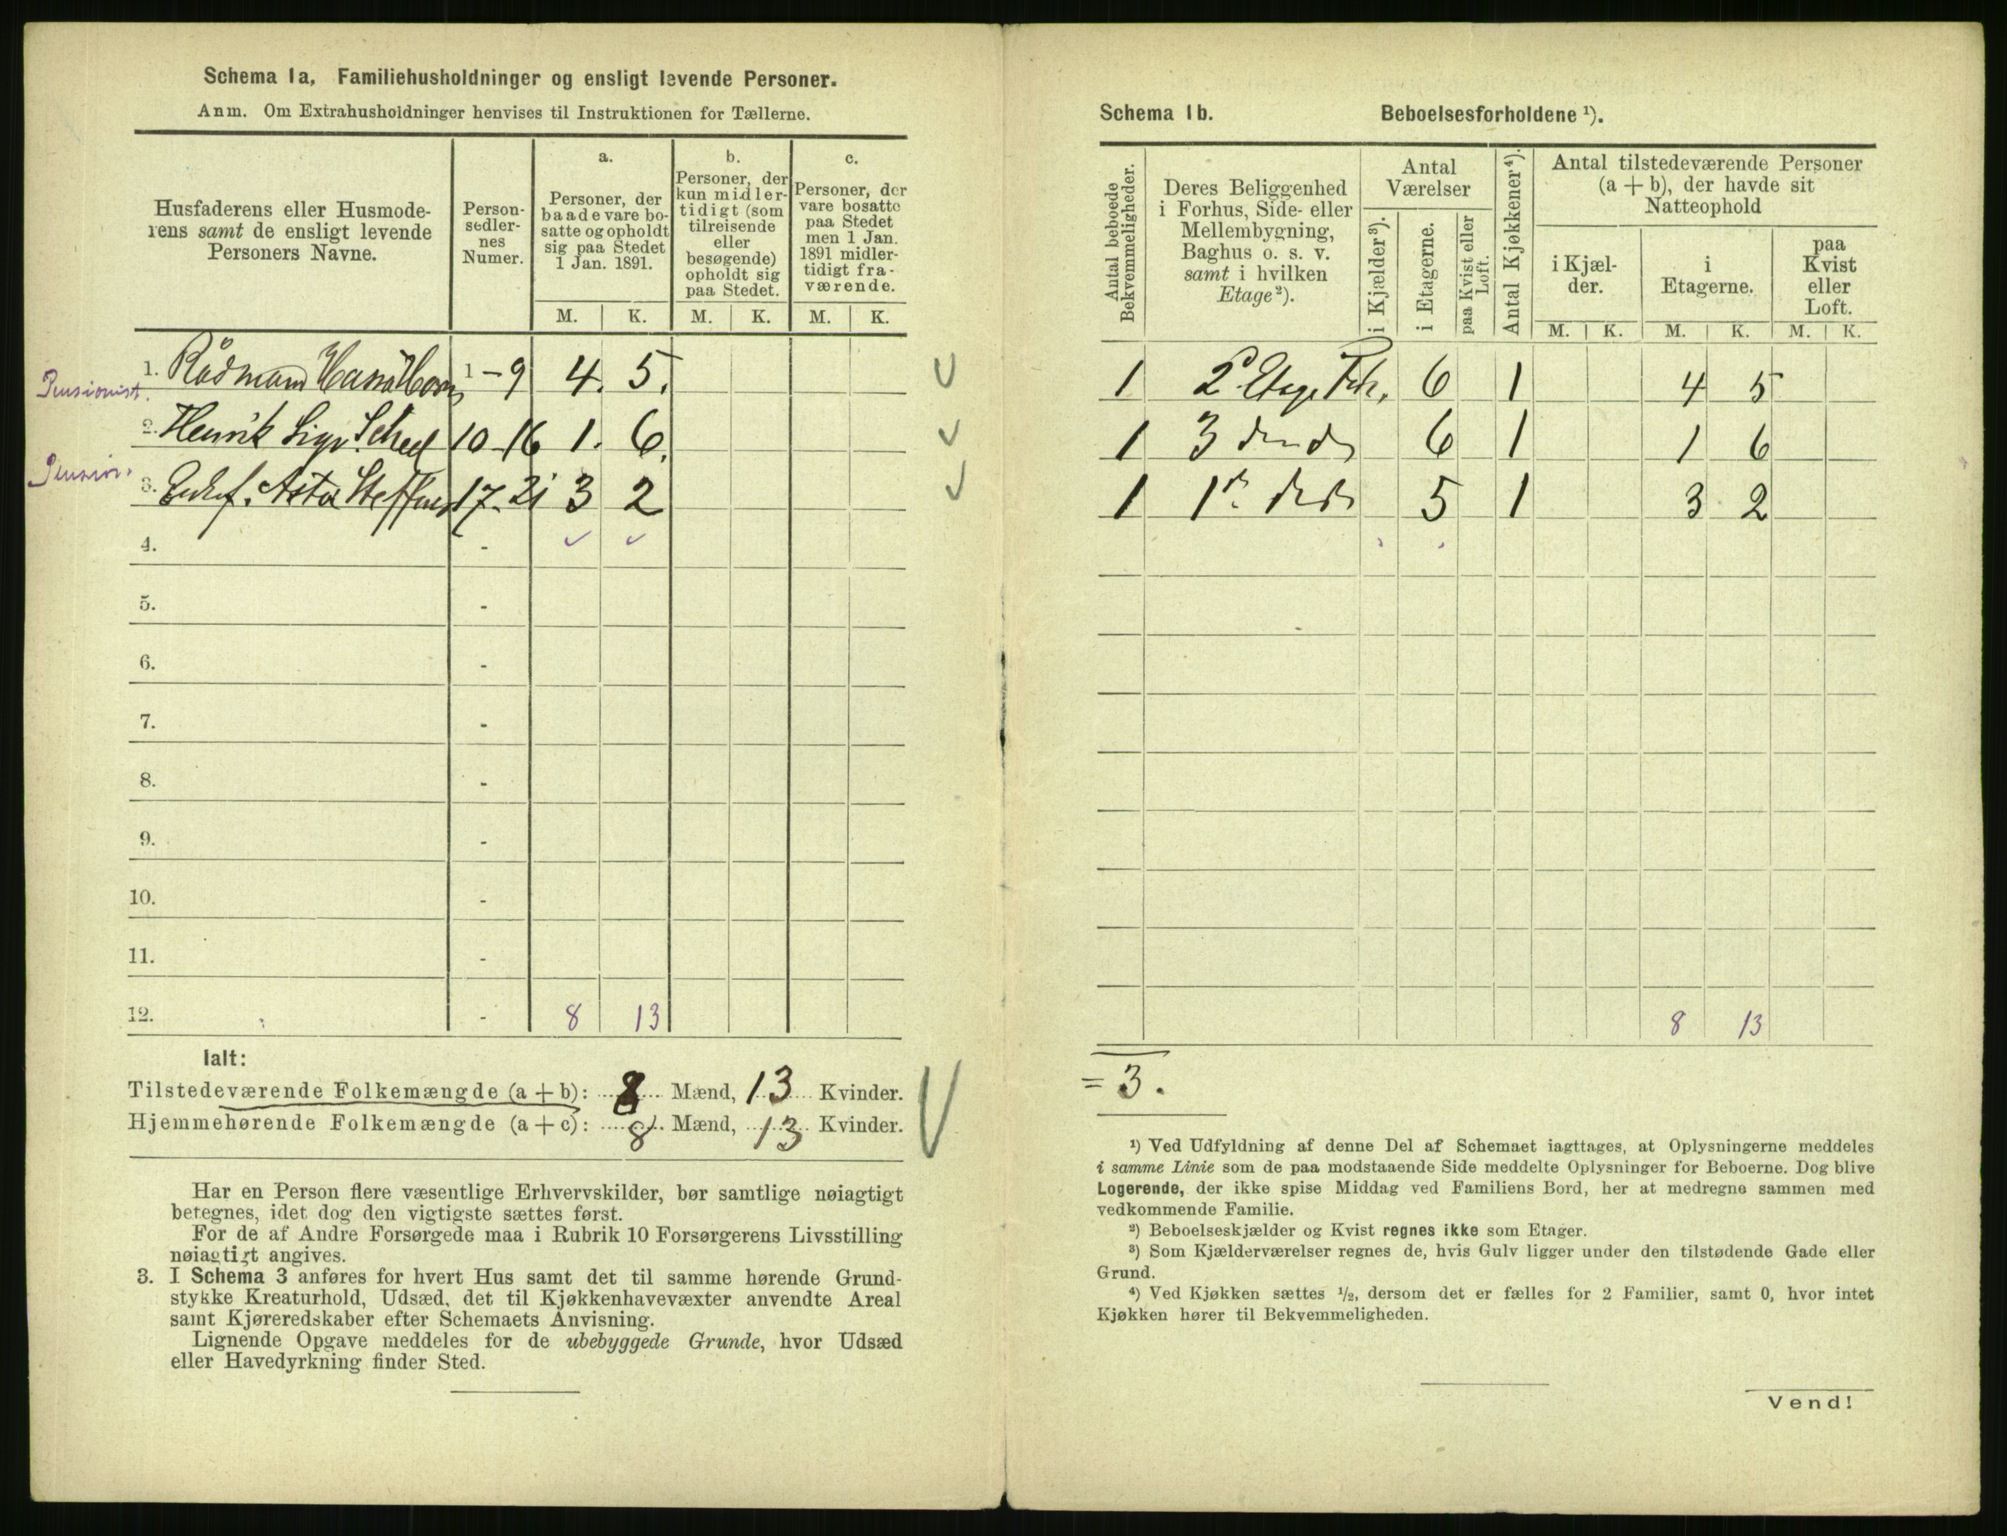 Schema 1a, Familiehusholdninger og ensligt levende Personer.
Anm. Om Extrahusholdninger henvises til Instruktionen for Tællerne.
Husfaderens eller Husmode-
rens samt de ensligt levende
Personers Navne.
Person-
sedler-
nes
Numer.
a.
Personer, der
baade vare bo-
satte og opholdt
sig paa Stedet
1 Jan. 1891.
b.
Personer, der
kun midler-
tidigt (som
tilreisende
eller
besøgende)
opholdt sig
paa Stedet.
c.
Personer, der
vare bosatte
paa Stedet
men 1 Jan.
1891 midler-
tidigt fra-
værende.
M. K. M. K. M. K.
1. Rådmand 1 - 9 4. 5.
Pensionist.
2. Henrik Sigv. Scheel 10-16 1. 6.
Pension.
3. Enkef. Asta Steffens 17-21 3 2
4. -
5. -
6. -
7. -
8. -
9. -
10. -
11. -
12. - 8 13
Ialt:
Tilstedeværende Folkemængde (a + b): 8 Mænd, 13 Kvinder.
Hjemmehørende Folkemængde (a + c): 8 Mænd, 13 Kvinder.
Har en Person flere væsentlige Erhvervskilder, bør samtlige nøiagtigt
betegnes, idet dog den vigtigste sættes først.
For de af Andre Forsørgede maa i Rubrik 10 Forsørgerens Livsstilling
nøiagtigt angives.
3. I Schema 3 anføres for hvert Hus samt det til samme hørende Grund-
stykke Kreaturhold, Udsæd, det til Kjøkkenhavevæxter anvendte Areal
samt Kjøreredskaber efter Schemaets Anvisning.
Lignende Opgave meddeles for de ubebyggede Grunde, hvor Udsæd
eller Havedyrkning finder Sted.
Schema 1b. Beboelsesforholdene ¹).
Antal beboede
Bekvemmeligheder.
Deres Beliggenhed
i Forhus, Side- eller
Mellembygning,
Baghus o. s. v.
samt i hvilken
Etage ²).
Antal
Værelser
i Kjælder ³).
i Etagerne.
paa Kvist eller
Loft.
Antal Kjøkkener ⁴).
Antal tilstedeværende Personer
(a + b), der havde sit
Natteophold
i Kjæl-
der.
i
Etagerne.
paa
Kvist
eller
Loft.
M. K. M. K. M. K.
1 2 Etage Fh. 6 1 4 5
1 3 6 1 1 6
1 1 5 1 3 2
8 13
= 3.
¹) Ved Udfyldning af denne Del af Schemaet iagttages, at Oplysningerne meddeles
i samme Linie som de paa modstaaende Side meddelte Oplysninger for Beboerne. Dog blive
Logerende, der ikke spise Middag ved Familiens Bord, her at medregne sammen med
vedkommende Familie.
²) Beboelseskjælder og Kvist regnes ikke som Etager.
³) Som Kjælderværelser regnes de, hvis Gulv ligger under den tilstødende Gade eller
Grund.
⁴) Ved Kjøkken sættes ½, dersom det er fælles for 2 Familier, samt 0, hvor intet
Kjøkken hører til Bekvemmeligheden.
Vend!